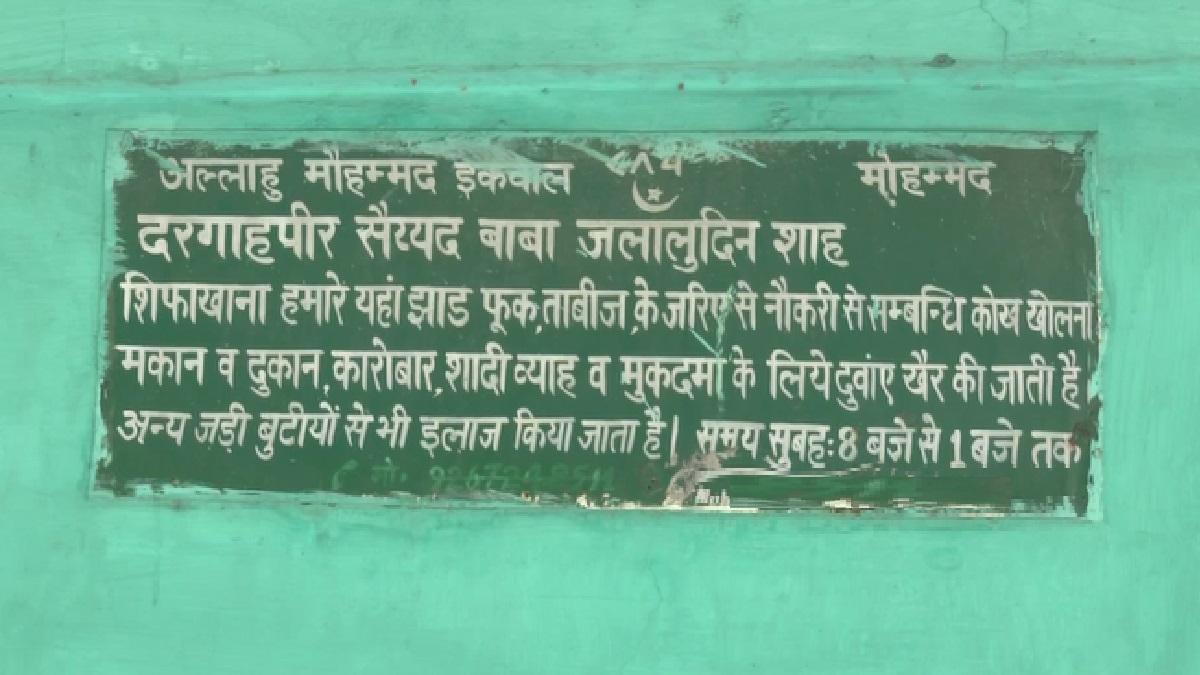 अल्लाहु मौहम्मद इकबाल मोहम्मद
दरगाहपीर सैय्यद बाबा जलालुदिन शाह
शिफाखाना हमारे यहां झाड फूक,ताबीज,के जरिए से नौकरी से सम्बन्धि कोख खोलना
मकान व दुकान,कारोबार,शादी व्याह व मुकदमा के लिये दुवांए खैर की जाती है
अन्य जड़ी बुटीयों से भी इलाज किया जाता है| समय सुबहः8 बजे से 1 बजे तक
मो.